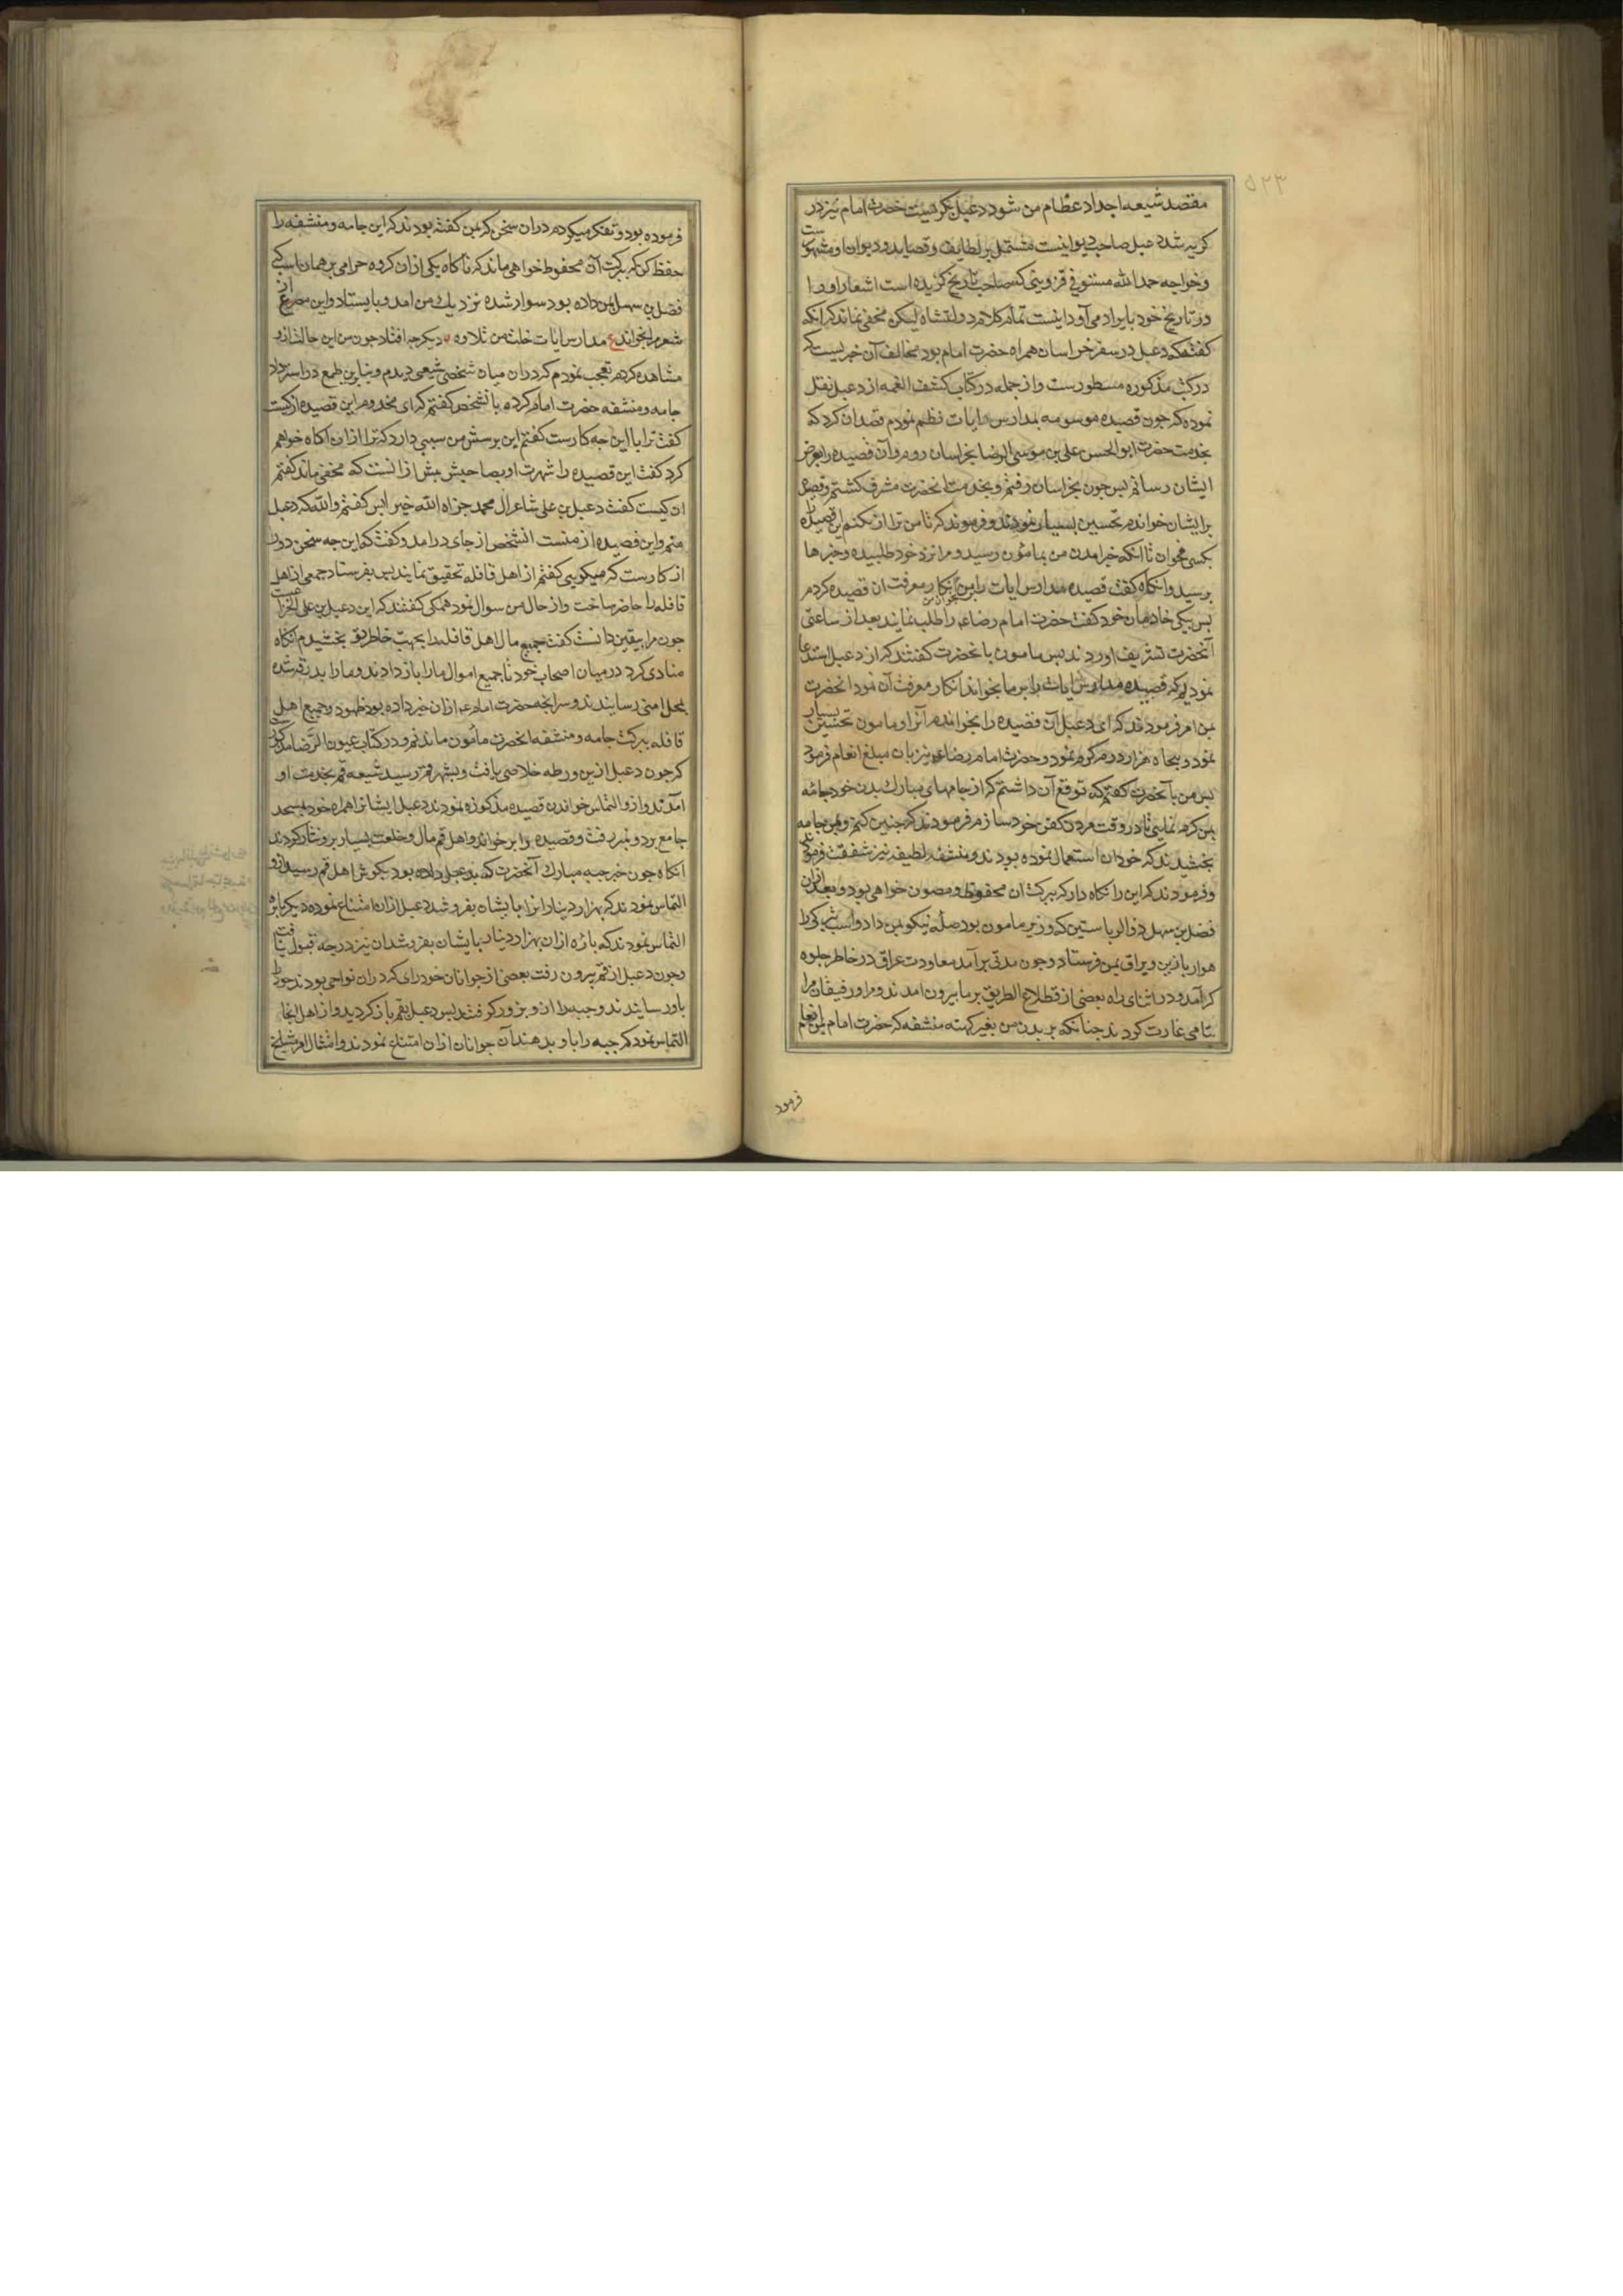 ۵۲۳
مقصد شیعه اجداد عظام من شود دعبل بگریست حضرت امام نیز در
کریه شد دعبل صاحب دیوانیست مشتمل بر لطایف و قصاید و دیوان او مشهورست
وخواجه حمدالله مستوفی قزوینی که صاحب تاریخ کزیده است اشعار او را
در تاریخ خود بایراد می آورد اینست تمام کلام دولتشاه لیکن مخفی نماند که آنکه
کفته که دعبل در سفر خراسان همراه حضرت امام بود مخالف آن خبریست که
در کتب مذکوره مسطورست و از جمله در کتاب کشف الغمه از دعبل نقل
نموده که جون قصیده موسومه بمدارس ایات نظم نمودم قصد ان کردم که
بخدمت حضرت ابوالحسن علی بن موسی الرضا بخراسان روم و آن قصیده را بعرض
ایشان رسانم بس جون بخراسان رفتم و بخدمت انحضرت مشرف کشتم و قصیده
برایشان خواندم تحسین بسیار نمودند و فرمودند که تا من ترا امر نکنم این قصیده را
بکسی مخوان تا انکه خبر امدن من بمامون رسید و مرا نزد خود طلبیده و خبرها
برسید و انکاه کفت قصیده مدارس ایات را بر من بخوان من انکار معرفت ان قصیده کردم
بس بیکی خادمان خود کفت حضرت امام رضا ع را طلب نمایند بعد از ساعتی
آنحضرت تشریف اوردند بس مامون با نحضرت کفتند که از دعبل استدعا
نمودیم که قصیده مدارس ایات را بر ما بخواند انکار معرفت آن نمود انحضرت
بمن امر فرمودند که ای دعبل آن قصیده را بخوان خواندم آنرا و مامون تحسین بسیار
نمود و بنجاه هزار درم کرم نمود و حضرت امام رضا ع نیز بان مبلغ انعام فرمود
بس من با نحضرت کفتم که توقع آن داشتم که از جامهای مبارک بدن خود جامه
بمن کرم نمایی تا در وقت مردن کفن خود سازم فرمودند که جنین کنم و بمن جامه
بخشیدند که خود ان استعمال نموده بودند و منشفه لطیفه نیز شفقت فرمودند
و فرمودند که این را نکاه دار که ببرکت ان محفوظ و مصون خواهی بود و بعد ازان
فضل بن سهل ذو الریاستین که وزیر مامون بود صله نیکو بمن داد و اسب ترکی را
هوار با زین و یراق بمن فرستاد و جون مدتی برآمد معاودت عراق در خاطر جلوه
کر آمد و در اثنای راه بعضی از قطاع الطریق بر ما بیرون امدند و مرا و رفیقان مرا
بتمامی غارت کردند جنانکه بر بدن من بغیر کهنه منشفه که حضرت امام بمن انعام
فرمود
فرموده بود و تفکر میکردم دران سخن که بمن کفته بودند که این جامه و منشفه را
حفظ کن که ببرکت آن محفوظ خواهی ماند که ناکاه یکی ازان کروه حرامی بر همان اسب که
فضل بن سهل بمن داده بود سوار شده نزدیک من امد و بایستاد و این مصرع از
شعر مرا بخواند ع مدارس ایات خلت من تلاوه دیکر جرا افتاد جون من این حالت ازو
مشاهده کردم تعجب نمودم که دران میان شخصی شیعی دیدم و بنابرین طمع در استرداد
جامه و منشفه حضرت امام کرده با نشخص کفتم که ای مخدوم این قصیده از کیست
کفت ترا با این جه کارست کفتم این برسش من سببی دارد که ترا ازان اکاه خواهم
کرد کفت این قصیده را شهرت او بصاحبش بیش از انست که مخفی ماند کفتم
ان کیست کفت دعبل بن علی شاعر ال محمد جزاه الله خیرا بس کفتم والله که دعبل
منم و این قصیده از منست انشخص از جای درامد و کفت که این جه سخن دور
از کارست که میکویی کفتم از اهل قافله تحقیق نمایند بس بفرستاد جمعی از اهل
قافله را حاضر ساخت و از حال من سوال نمود همکی کفتند که این دعبل بن علی الخزاعیست
جون مرا بیقین دانست کفت جمیع مال اهل قافله را بجهت خاطر تو بخشیدم انکاه
منادی کرد در میان اصحاب خود تا جمیع اموال ما را باز دادند و ما را بدرقه شده
بمحل امنی رسانیدند و سر انجه حضرت امام ع ازان خبر داده بود ظهور نمود و جمیع اهل
قافله ببرکت جامه و منشفه انحضرت مأمون ماندیم و در کتاب عیون الرضا مذکورست
که جون دعبل ازین ورطه خلاصی یافت و بشهر قم رسید شیعه قم بخدمت او
آمدند و ازو التماس خواندن قصیده مذکوره نمودند دعبل ایشانرا همراه خود بمسجد
جامع برد و بمنبر رفت و قصیده را بر خواند و اهل قم مال و خلعت بسیار برو نثار کردند
انکاه جون خبر جبه مبارک آنحضرت که بدعبل داده بود بکوش اهل قم رسید ازو
التماس نمودند که بهزار دینار انرا بایشان بفروشد دعبل ازان امتناع نموده دیکر باره
التماس نمودند که باره ازان بهزار دینار بایشان بفروشد ان نیز درجه قبول نیافت
وجون دعبل از قم بیرون رفت بعضی از جوانان خود رای که دران نواحی بودند خود را
باو رسانیدند و جبه را ازو بزور کرفتند بس دعبل بقم باز کردید و از اهل انجا
التماس نمود که جبه را باو بدهند آن جوانان ازان امتناع نمودند و امتثال امر مشایخ